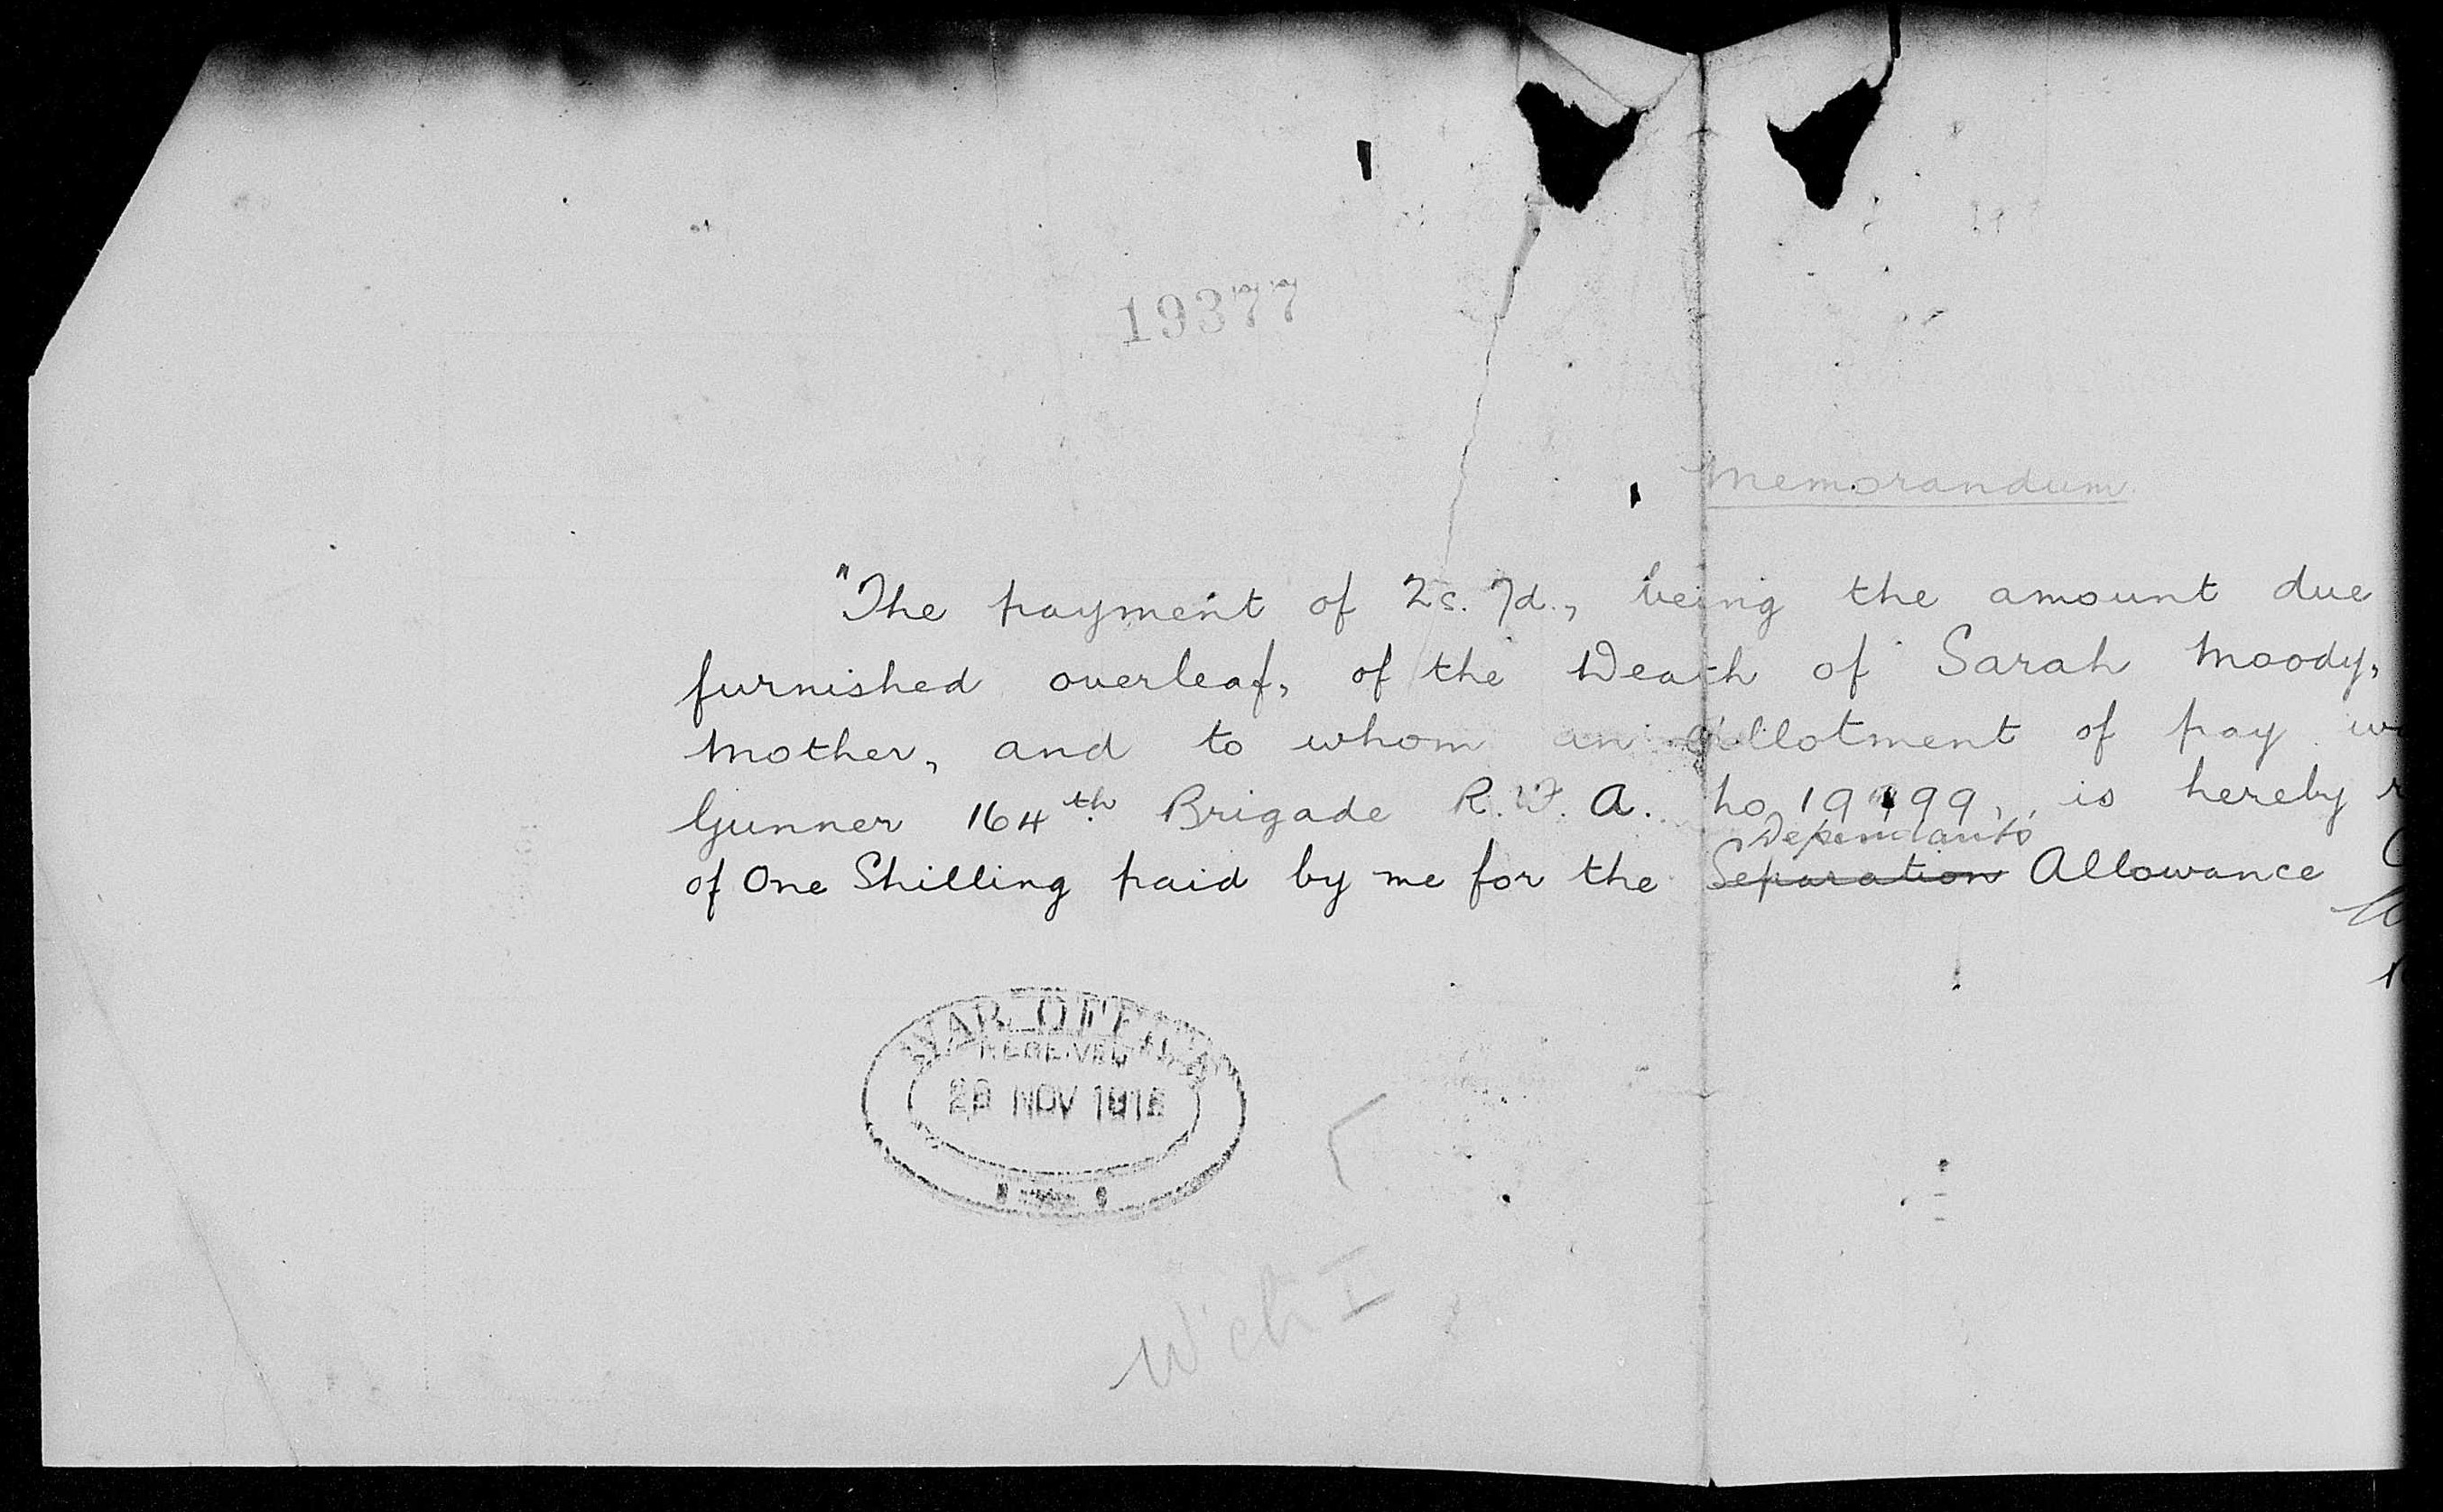 19377
Memorandum
"The payment of 2s. 7d., being the amount due
furnished overleaf, of the Death of Sarah Moody,
Mother, and to whom an allotment of pay
Gunner 164th Brigade R.F.A. No
is hereby
Dependants
of One Shilling paid by me for the Separation Allowance
WAR OFFICE
RECEIVED
NOV